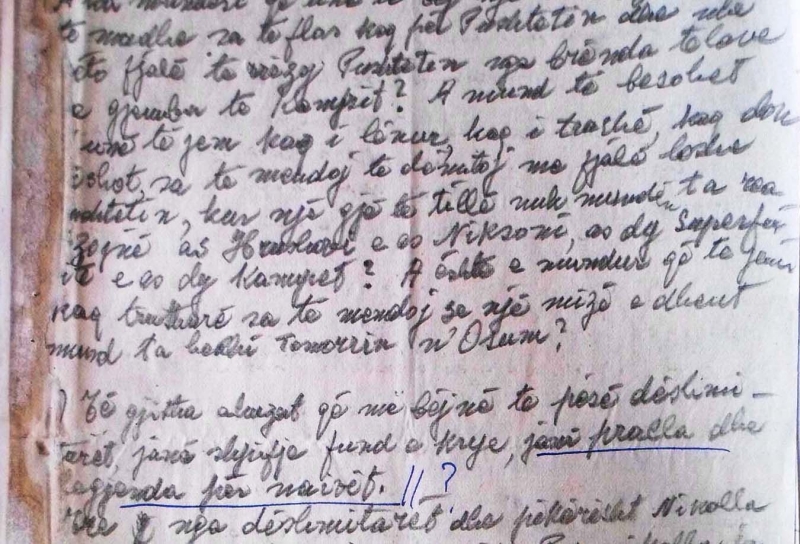 te madhe sa të flas kaq për Pushtetin dhe
to fjalë të rrëzoj Pushtetin nga brënda telave
e gjemba të Kampit? A mund të besohet
unë të jem kaq i lënur, kaq i trashë, kaq
sa të mendoj të dëmtoj me fjalë boshe
shtetin, kur një gjë të tillë nuk mundën ta
zojnë as Hrushovi e as Niksoni, as dy Superfuq
të e as dy Kampet? A është e mundur që të jem
kaq trutharë sa të mendoj se një mizë e dheut
mund ta hedhi Tomorrin n'Osum?
) Të gjitha akuzat që më bëjnë të pesë dëshmi-
tarët, janë shpifje fund e krye, janë pralla dhe
legjenda për naivët. // ?
nga dëshmitarët dhe pikërisht Nikolla